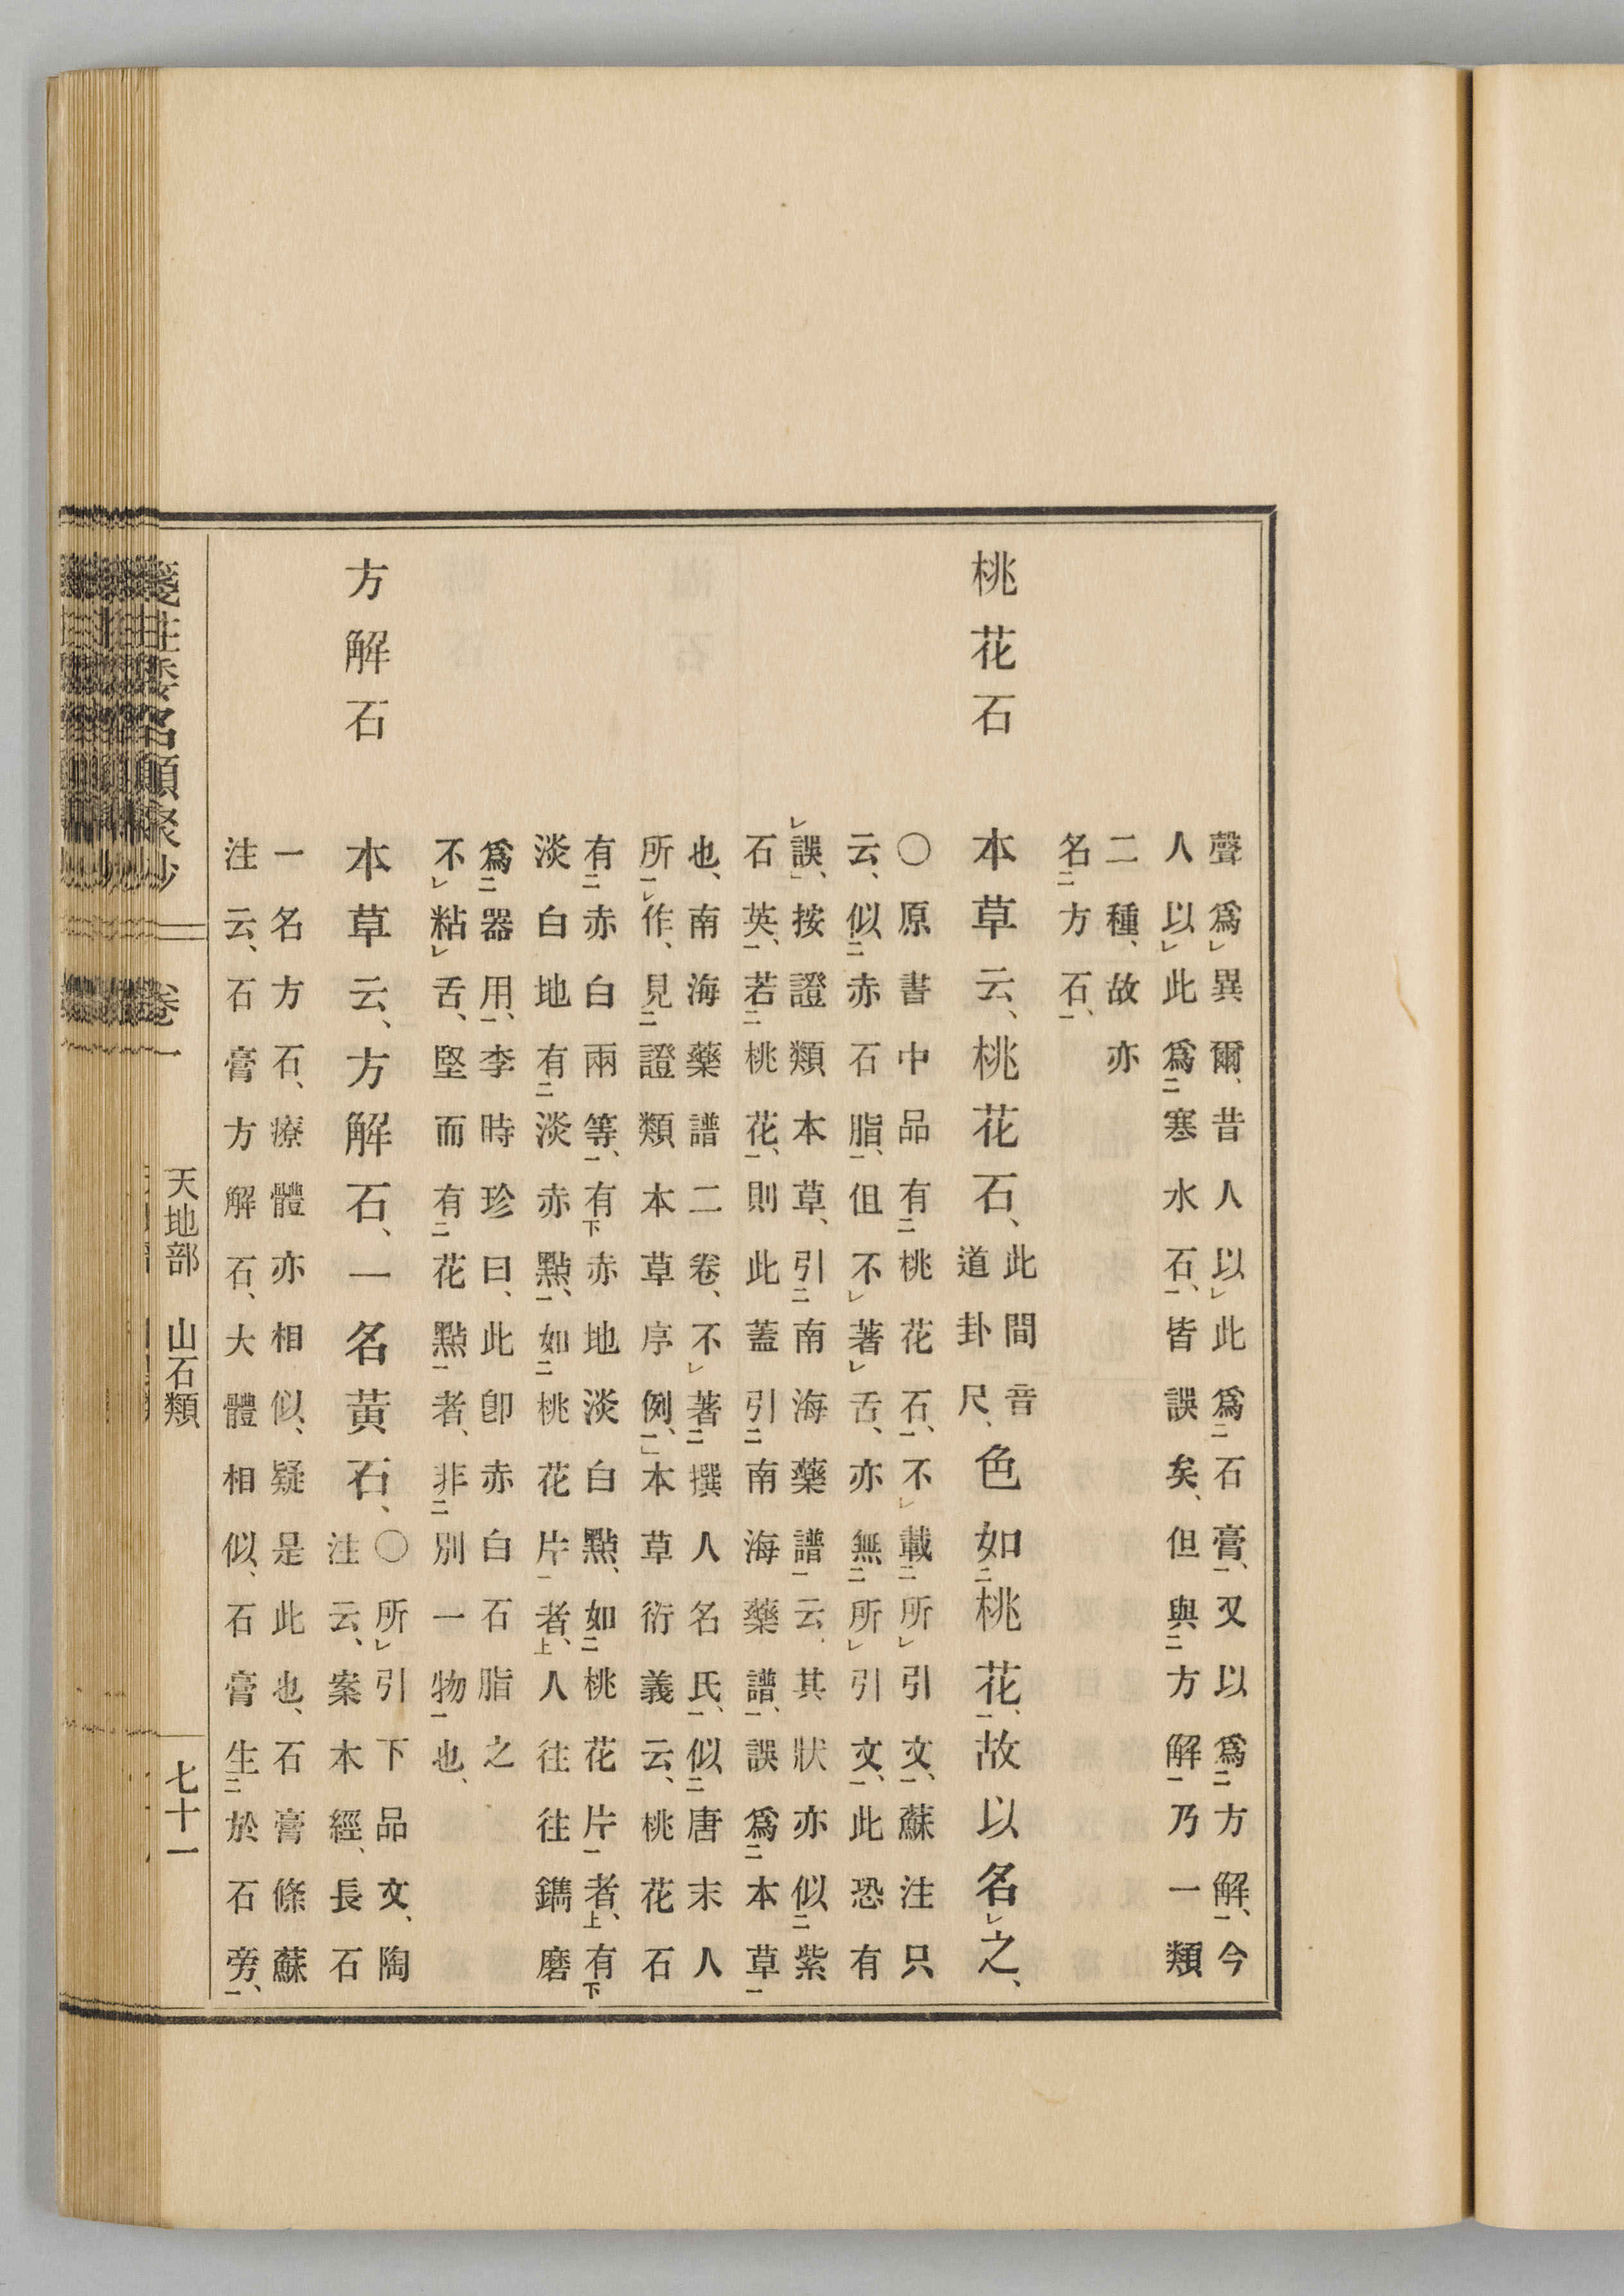 聲爲㆑異爾、昔人以㆑此爲㆓石膏㆒、又以爲㆓方解㆒、今
人以㆑此爲㆓寒水石㆒、皆誤矣、但與㆓方解㆒乃一類
二種、故亦
名㆓方石㆒、
桃花石 本草云、桃花石、
此間音
道卦尺、
色如㆓桃花㆒、故以名㆑之、
〇原書中品有㆓桃花石㆒、不㆑載㆓所㆑引文㆒、蘇注只
云、似㆓赤石脂㆒、但不㆑著㆑舌、亦無㆓所㆑引文㆒、此恐有
㆑誤、按證類本草、引㆓南海藥譜㆒云、其狀亦似㆓紫
石英㆒、若㆓桃花㆒、則此蓋引㆓南海藥譜㆒、誤爲㆓本草㆒
也、南海藥譜二卷、不㆑著㆓撰人名氏㆒、似㆓唐末人
所㆒㆑作、見㆓證類本草序例㆒、本草衍義云、桃花石
有㆓赤白兩等㆒、有㆘赤地淡白點、如㆓桃花片㆒者㆖、有㆘
淡白地有㆓淡赤點㆒、如㆓桃花片㆒者㆖、人往往鐫磨
爲㆓器用㆒、李時珍曰、此卽赤白石脂之
不㆑粘㆑舌、堅而有㆓花點㆒者、非㆓別一物㆒也、
方解石 本草云、方解石、一名黃石、
〇所㆑引下品文、陶
注云、案本經、長石
一名方石、療體亦相似、疑是此也、石膏條蘇
注云、石膏方解石、大體相似、石膏生㆓於石旁㆒、
名類聚抄 卷一 天地部 山石類 七十一